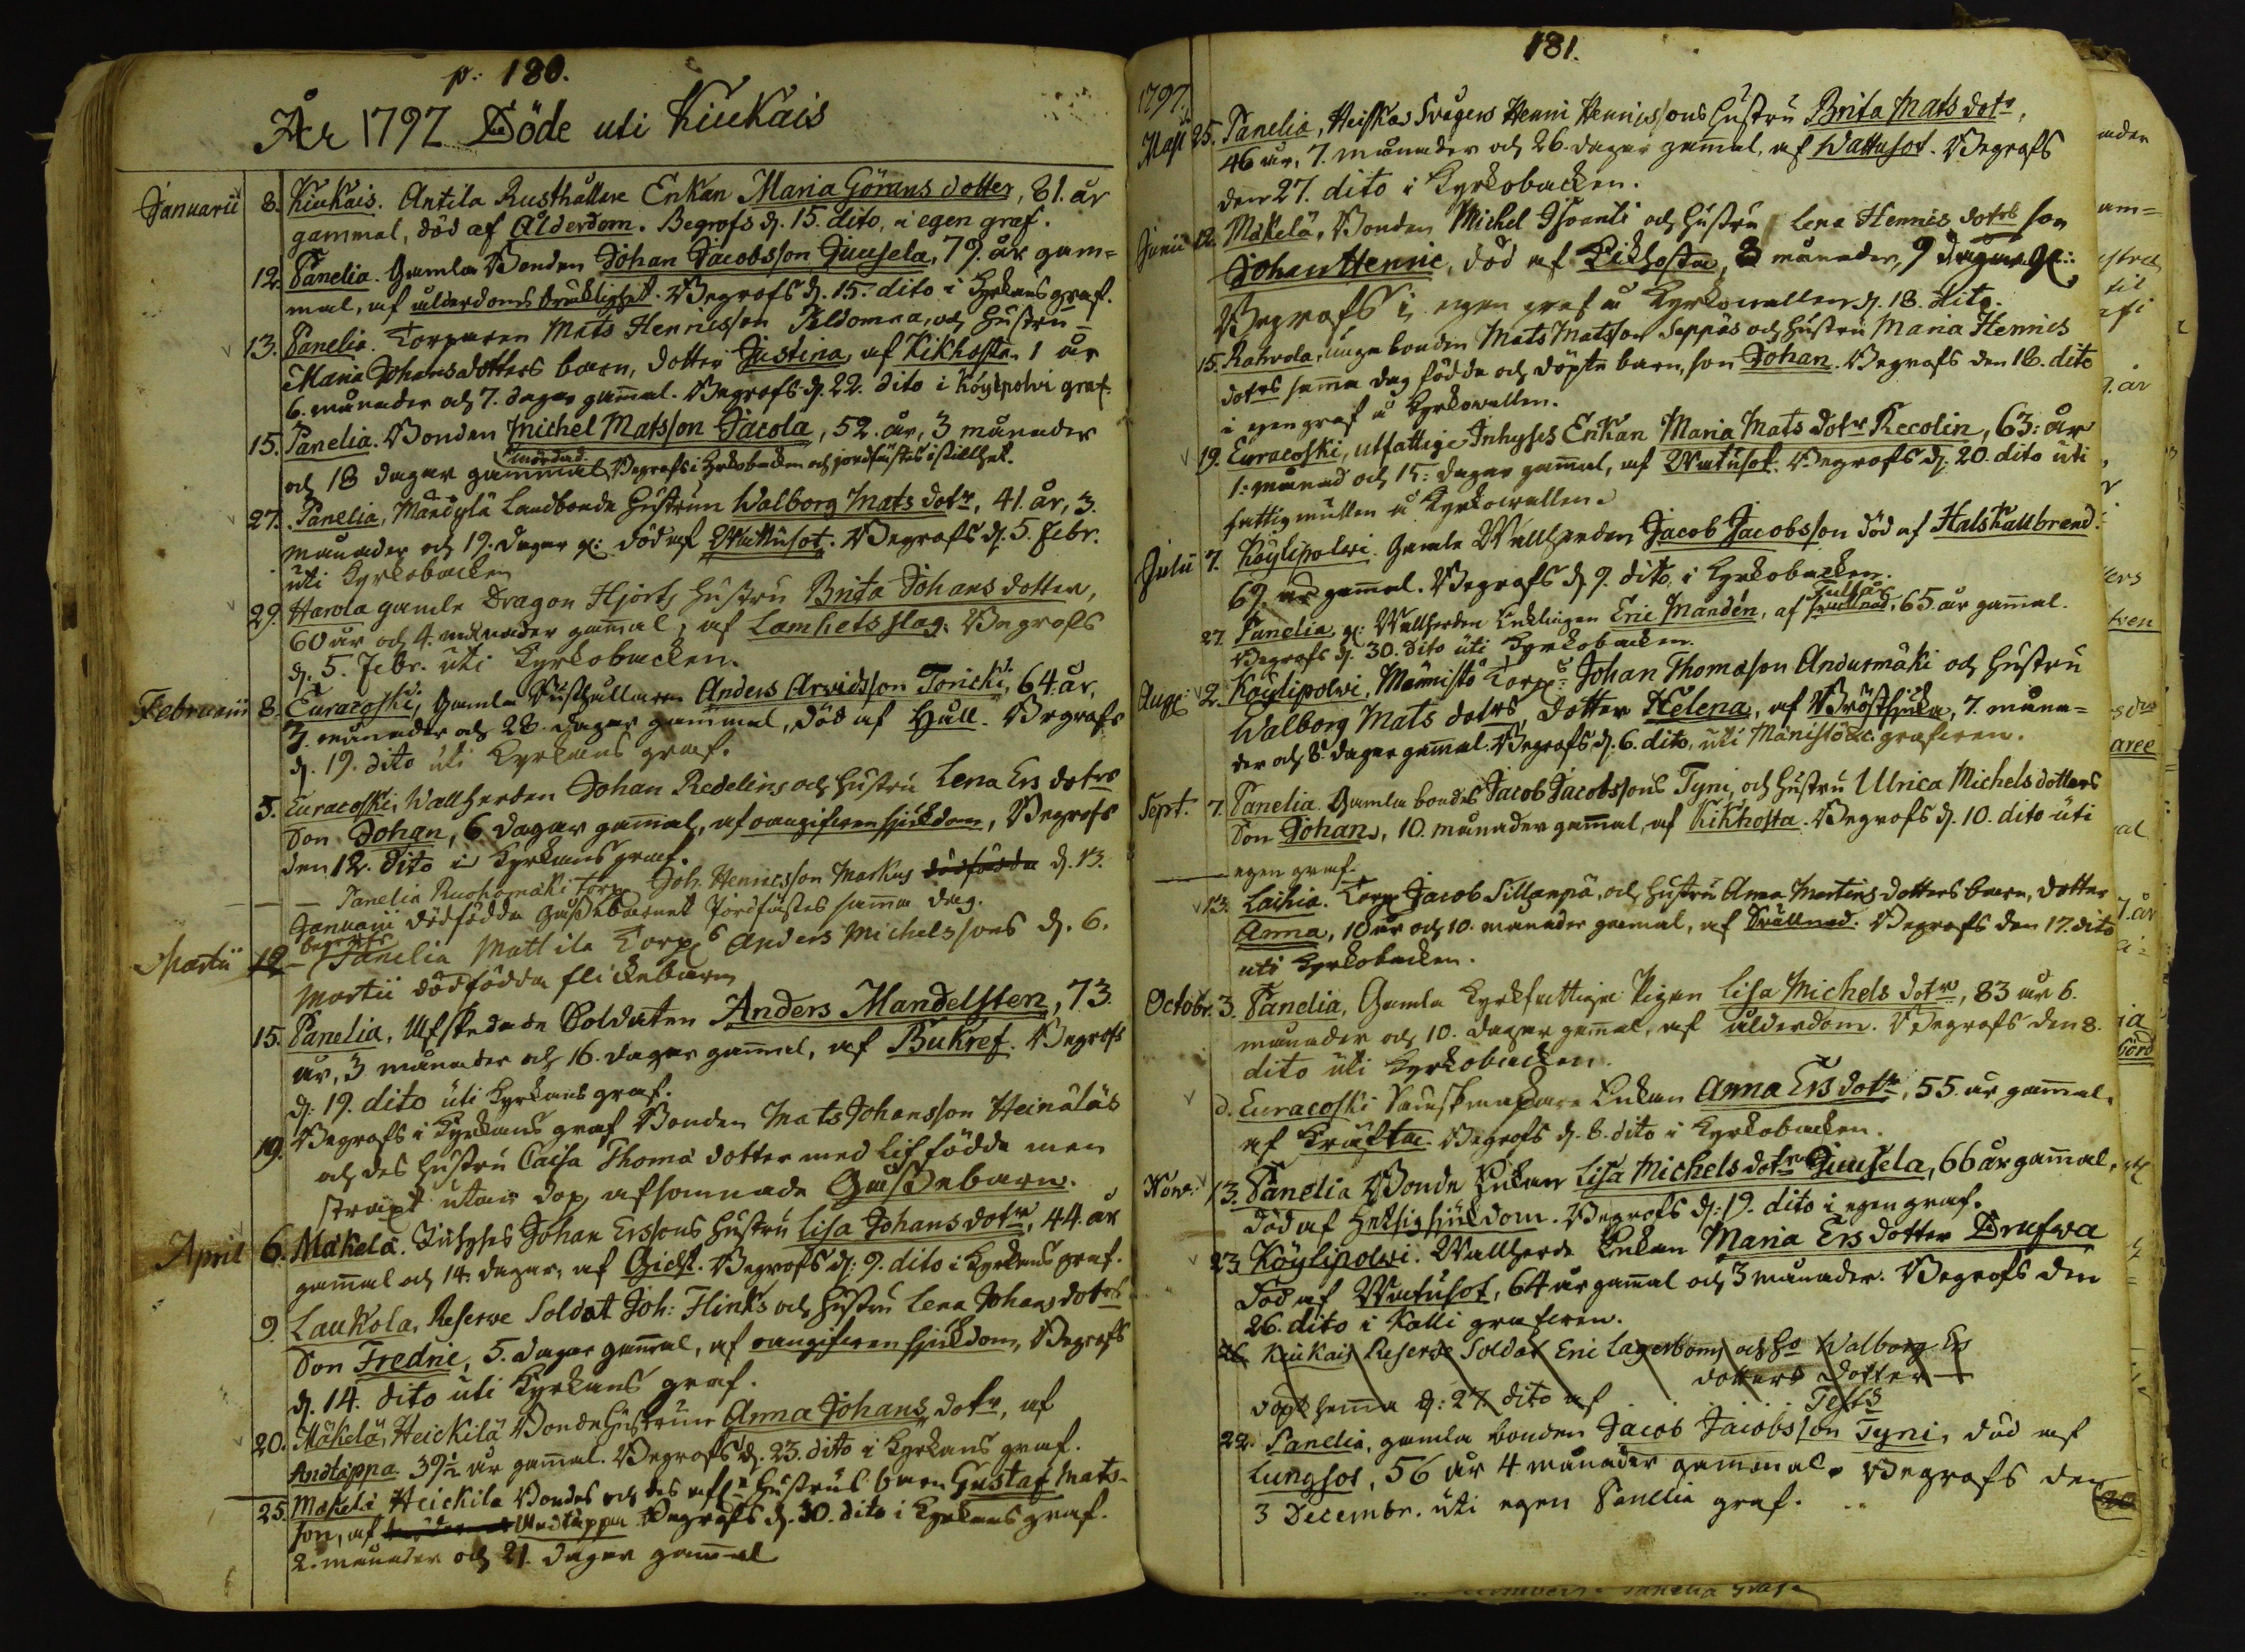 p. 180.
År 1797 Döde uti Kiukais
Januarii 8. Kiukais. Antila Rusthållare Enkan Maria Görans dotter, 81. år
gammal, död af Ålderdom. Begrofs d. 15. dito, i egen graf.
12. Panelia. Gamla Bonden Johan Jacobsson Juusela, 79. år gam=
mal, af ålderdoms bräcklighet. Begrofs d. 15. dito i Kyrkans graf.
13. Panelia. Torparen Mats Henricsson Peldomaa, och hustru
Maria Johansdotters barn, dotter Justina, af Kikhosta. 1 år
6. månader och 7. dagar gam̄al. Begrofs d. 22. dito i Köylpolvi graf.
15. Panelia. Bonden Michel Matsson Jacola, 52. år, 3 månader
mördad.
och 18 dagar gammal, Begrofs i Kyrkobacken och jordfästes i stillhet.
27. Panelia, Mandylä Landbonde hustrun Walborg Mats dotr, 41. år, 3.
månader och 19. dagar g: död af Wattusot. Begrofs d. 5. Febr.
uti Kyrkobacken
29. Harola gamle Dragon Hjorts hustru Brita Johans dotter,
60 år och 4. månader gam̄al, af Lamhets slag. Begrofs
d. 5. Febr. uti Kyrkobacken.
Februarii 8. Euracoski, Gamla Rusthållaren Anders Arvidsson Toricki, 64. år,
3. månader och 28. dagar gammal, död af Håll. Begrofs
d. 19. dito uti Kyrkans graf.
5. Euracoski, Wallherden Johan Redelins och hustru Lena Ers dotrs
Son Johan, 6 dagar gam̄al, af oangifven sjukdom, Begrofs
den 12. dito i Kyrkans graf.
— Panelia Ruohomäki torp. Joh. Henricsson Markus dödfödda d. 13.
Januarii dödfödda Gossebarnet Jordfästes samma dag.
begrofs
Martii 12 — Panelia Mattila Torp. Anders Michelssons d. 6.
Martii dödfödda flickebarn
15. Panelia, Afskedade Soldaten Anders Mandelsten, 73.
år, 3 månader och 16. dagar gam̄al, af Bukref. Begrofs
d: 19. dito uti Kyrkans graf.
19. Begrofs i Kyrkans graf Bonden Mats Johansson Heinälas
och des hustru Caisa Thoma dotter med lif födda men
strax utan dop afsomnade Gossebarn.
April 6. Mäkelä. Inhyses Johan Erssons hustru Lisa Johans dotr, 44. år
gam̄al och 14. dagar, af Gickt. Begrofs d: 9. dito i Kyrkans graf.
9 Laukola, Reserve Soldat Joh: Flinks och hustru Lena Johans dotrs
Son Fredric, 5. dagar gam̄al, af oangifven sjukdom, Begrofs
d. 14. dito uti Kyrkans graf.
20. Mäkelä, Heickilä Bonde Hustrun Anna Johans dotr, af
Andtäppa. 39½ år gam̄al. Begrofs d. 23. dito i Kyrkans graf.
25. Mäkelä Heickila Bondes och des afl. hustrus barn Gustaf Mats-
son, af Andtäppa Begrofs d. 30. dito i Kyrkans graf.
2. månader och 21. dagar gam̄al
181.
1797.
Maji 25. Panelia, Heiskas Svågers Henric Henricssons hustru Brita Mats dotr,
46 år, 7. månader och 26. dagar gam̄al, af Wattusot. Begrofs
den 27. dito i Kyrkobacken.
Junii 12. Mäkelä, Bonden Michel Isoanti och hustru Lena Henrics dotrs son
Johan Henric, död af Kikhosta, 3 månader, 9 dagar gl:
Begrofs i egen graf å Kyrkovallen d. 18. dito.
15. Rahvola, unga bonden Mats Matsson Seppäs och hustru Maria Henrics
dotrs samma dag födda och döpta barn, son Johan. Begrofs den 18. dito
i egen graf å Kyrkovallen.
19. Euracoski, utfattige Inhyses Enkan Maria Mats dotr Recolin, 63: år
1: månad och 15: dagar gam̄al, af Wattusot. Begrofs d: 20. dito uti
fattigmullen å Kyrkovallen.
Julii 7. Köylipolvi. Gamla Wallherden Jacob Jacobsson död af Halskallbrand.
69. år gam̄al. Begrofs d. 9. dito, i Kyrkobacken.
27. Panelia, g: Wallherden Enklingen Eric Mandén, af Svullnad, 65. år gammal.
Begrofs d. 30. dito uti Kyrkobacken.
Aug: 2. Köylipolvi, Männistö Torps Johan Thomæson Andusmäki och hustru
Walborg Mats dotrs, dotter Helena, af Bröstsjuka, 7. måna=
der och 8. dagar gam̄al. Begrofs d. 6. dito, uti Männistö grafven.
Sept. 7. Panelia. Gamla bonden Jacob Jacobssons Tyni, och hustru Ulrica Michelsdotters
Son Johans, 10. månader gammal, af Kikhosta. Begrofs d. 10. dito uti
egen graf.
13. Laihia. Torp. Jacob Sillanpä, och hustru Anna Martins dotters barn, dotter
Anna, 10 år och 10. månader gam̄al, af Svullnad. Begrofs den 17. dito
uti Kyrkobacken.
Octobr. 3. Panelia, Gamla Kyrkfattiga Pigan Lisa Michels dotr, 83 år 6.
månader och 10. dagar gam̄al, af ålderdom. Begrofs den 8.
dito uti Kyrkobacken.
d. Euracoski Enkan Anna Ers dotr, 55. år gam̄al,
af Kräfta. Begrofs d. 8. dito i Kyrkobacken.
Nov. 13. Panelia Bonde Enkan Lisa Michels dotr Juusela, 66 år gam̄al,
död af hetsig sjukdom. Begrofs d: 19. dito i egen graf.
23. Köylipolvi. Wallherde Enkan Maria Ers dotter Drufva
död af Wattusot, 64 år gam̄al och 3 månader. Begrofs den
26. dito i Kalli grafven.
26. Kiukais Reserve Soldat Eric Lagerboms och ho Walborg Ers
dotters dotter —
döpt hemma d: 27. dito af
22. Panelia, gamla bonden Jacob Jacobsson Tyni, död af
Lungsot, 56 år 4 månader gammal. Begrofs den
3 Decembr. uti egen Panelia graf.